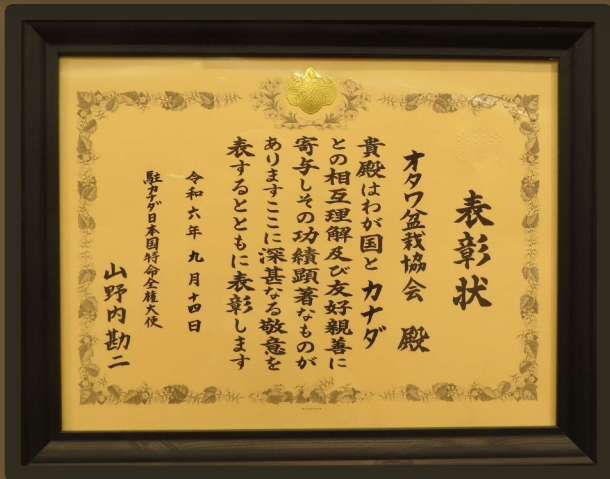 表彰状
オタワ盆栽協会 殿
貴殿はわが国と カナダ
との相互理解及び友好親善に
寄与しその功績顕著なものが
ありますここに深甚なる敬意を
表するとともに表彰します
令和六年 九月十四日
駐カナダ日本国特命全権大使
山野内勘二